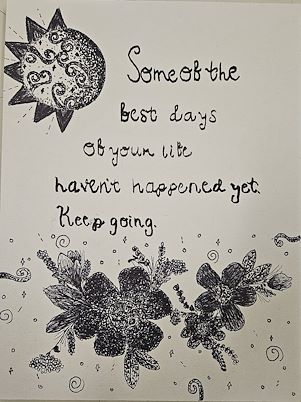 Some of the
best days
of your life
haven't happened yet.
Keep going.